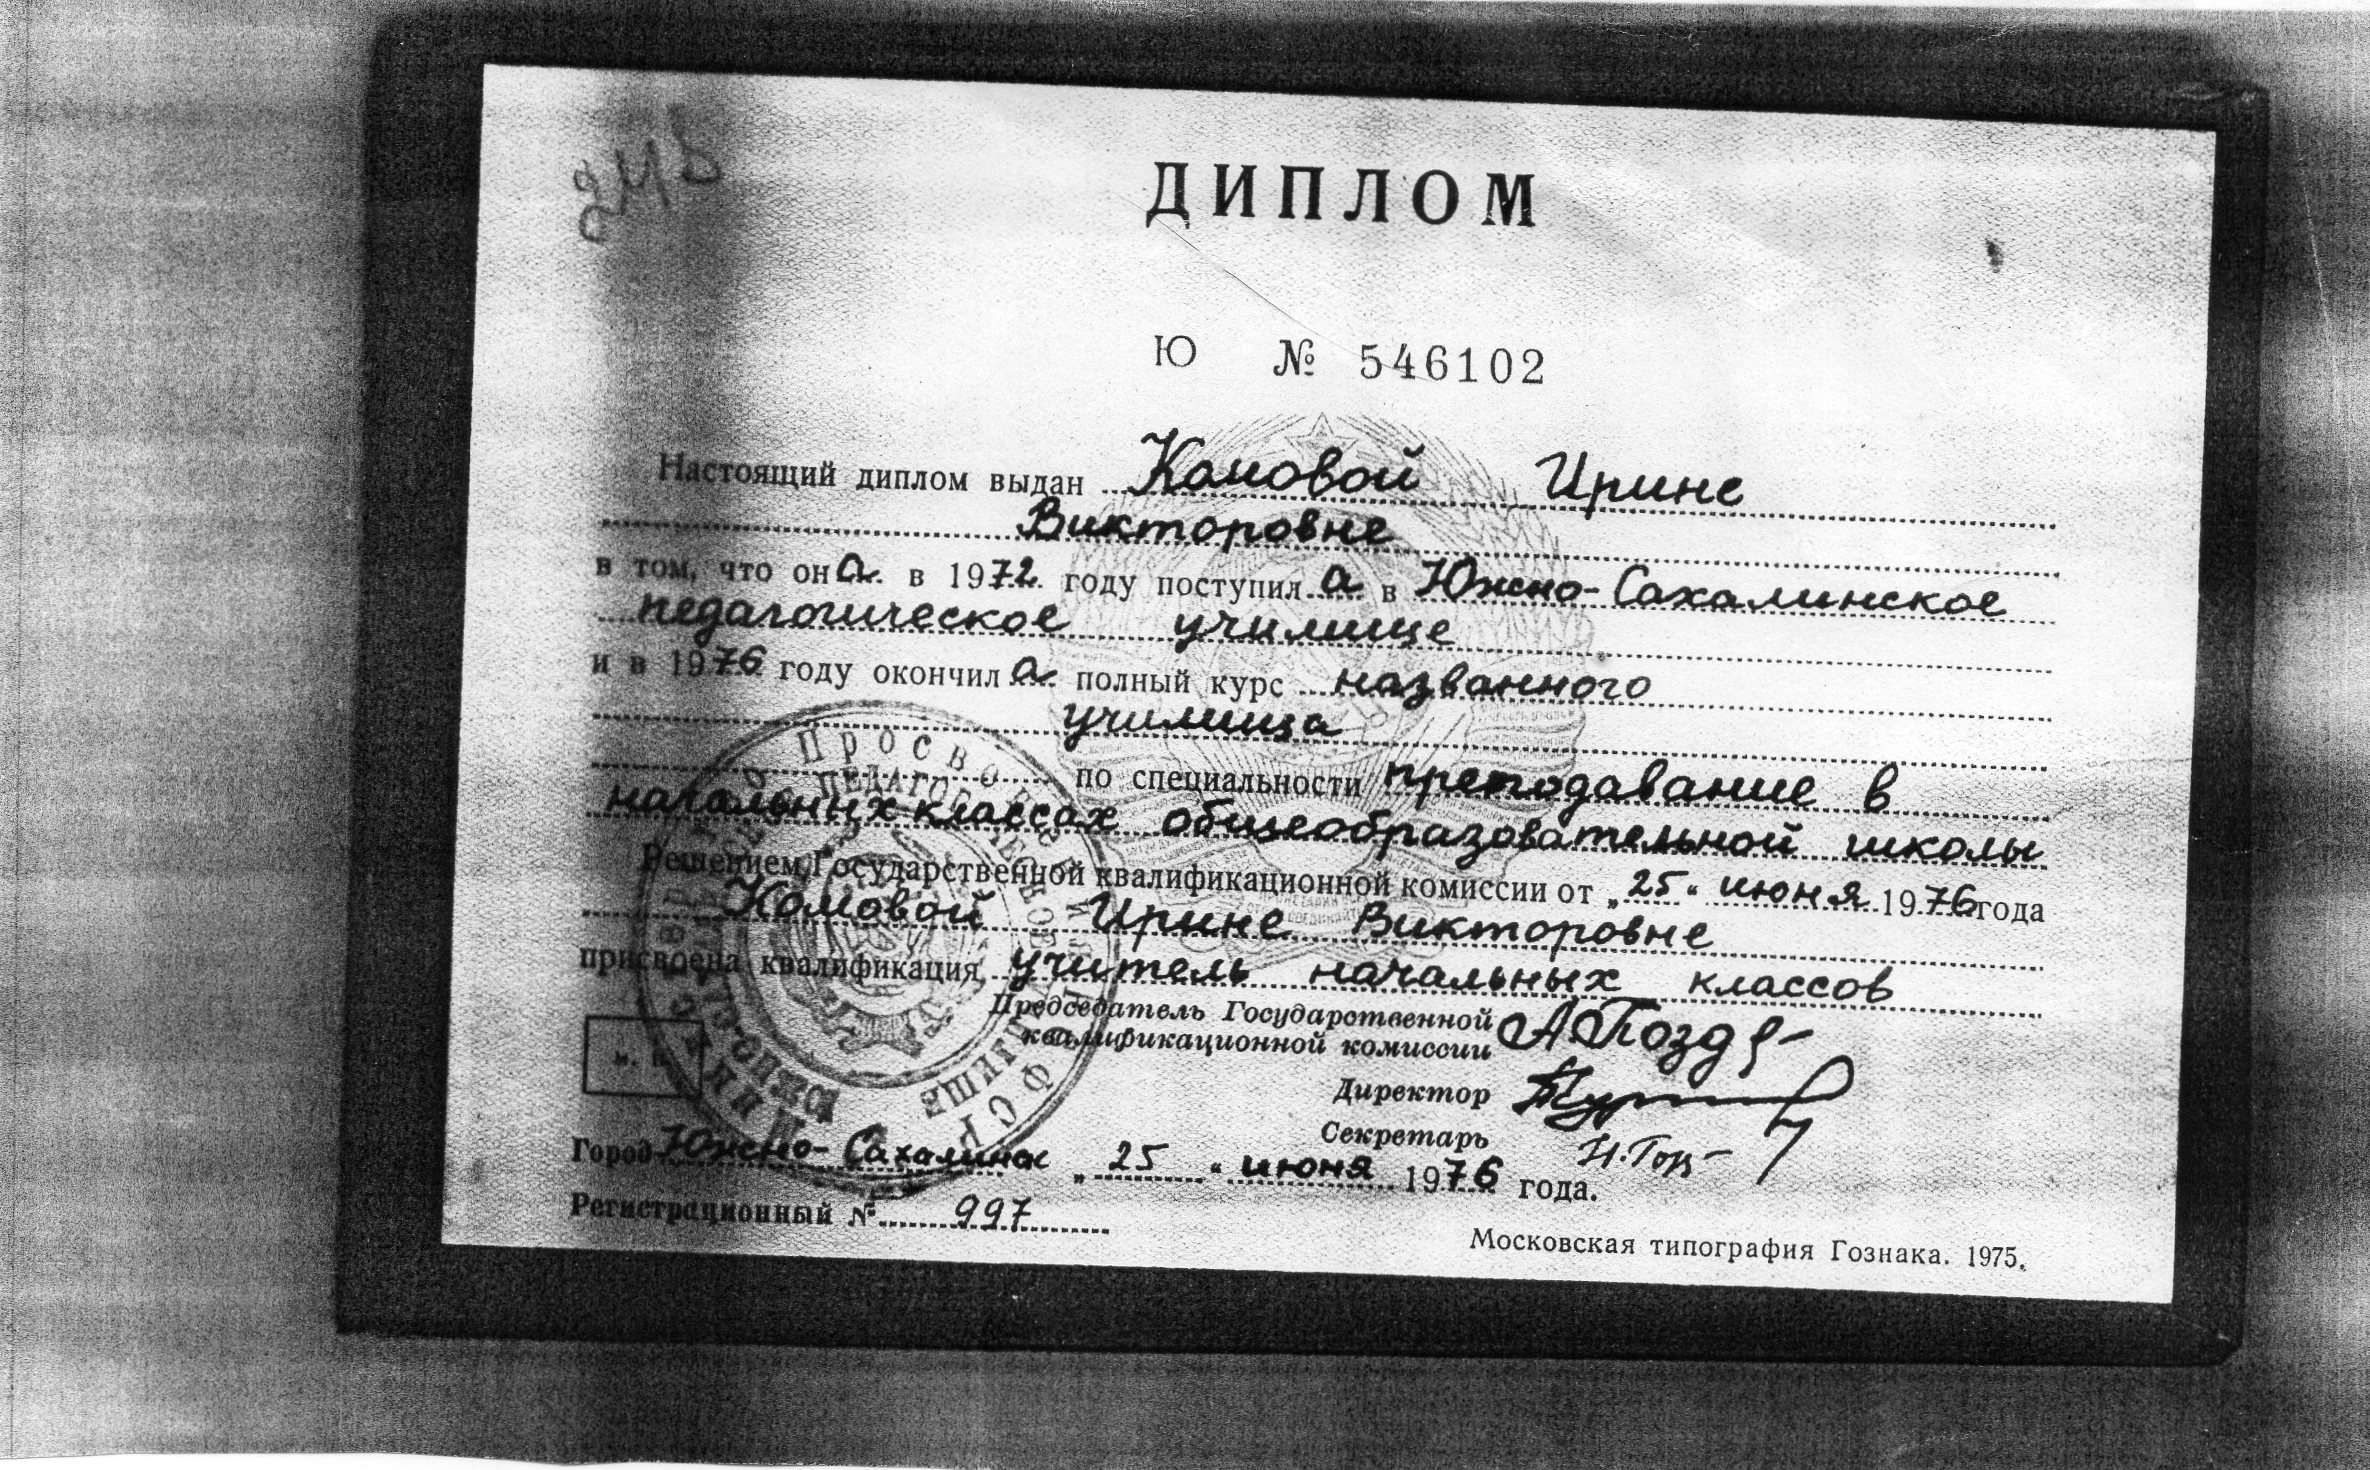 245
ДИПЛОМ
Ю № 546102
Настоящий диплом выдан Комовой Ирине
Викторовне
в том, что она в 1972 году поступила в Южно-Сахалинское
педагогическое училище
и в 1976 году окончила полный курс названного
училища
по специальности преподавание в
начальных классах общеобразовательной школы
Решением Государственной квалификационной комиссии от „25" июня 1976 года
Комовой Ирине Викторовне
присвоена квалификация учитель начальных классов
Председатель Государственной
квалификационной комиссии
Директор
Секретарь
м. п.
Город Южно-Сахалинск „25" июня 1976 года.
Регистрационный № 997
Московская типография Гознака. 1975.